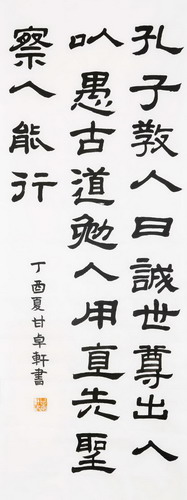 孔子教人曰誠世尊出人
以愚古道勉人用直先聖
察人能行
丁酉夏甘卓軒書